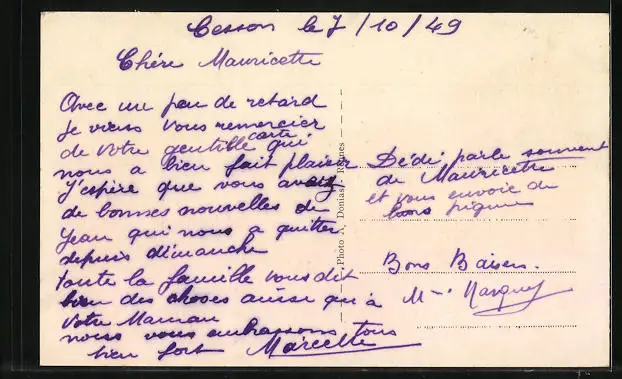 Cesson le 7/10/49
Chère Mauricette
Avec un peu de retard
Je viens vous remercier
de votre gentille carte qui
nous a bien fait plaisir
J'espère que vous avez
de bonnes nouvelles de
Jean qui nous a quitter
depuis dimanche
toute la famille vous dit
bien des choses aussi qu'à
votre Maman
nous vous embrassons tous
bien fort Marcelle
Photo A. Donias, Rennes
Dédé parle souvent
de Mauricette
et vous envoie de
bons
Bons Baisers.